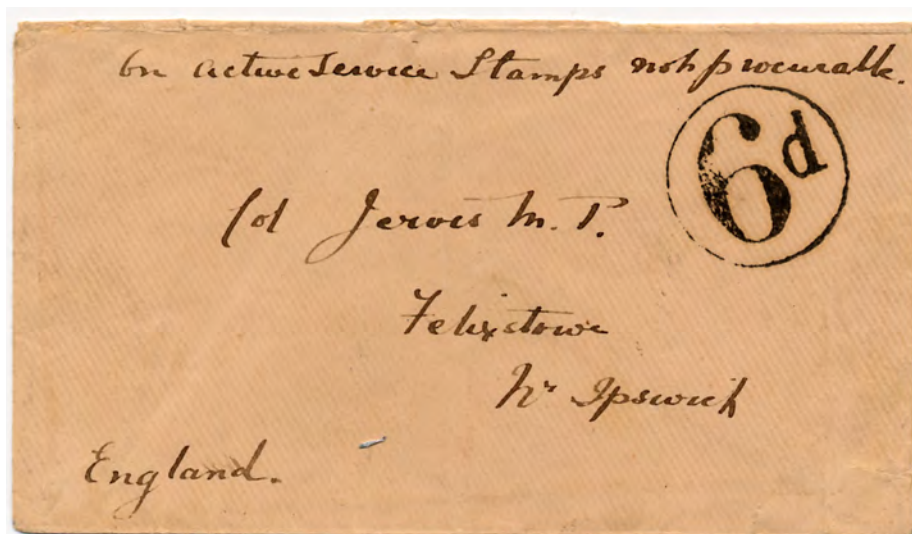 On active Service Stamps not procurable.
6d
Col Jervis M.P.
Felixstowe
Nr Ipswich
England.